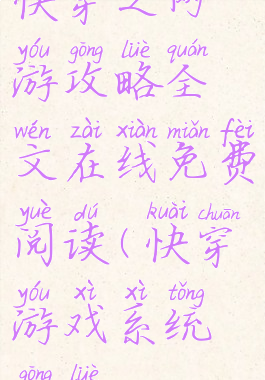 快穿之网
yóu gōng lüè quán
游攻略全
wén zài xiàn miǎn fèi
文在线免费
yuè dú kuài chuān
阅读(快穿
yóu xì xì tǒng
游戏系统
gōng lüè